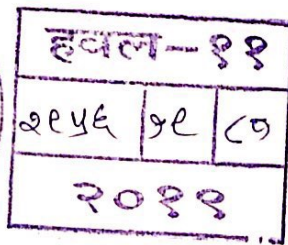 हवल-११
२९५६ ८७
२०११